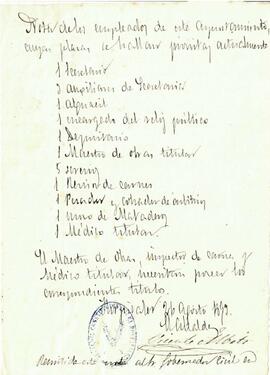 Nota de los empleados de este ayuntamiento,
cuyas plazas se hallan provistas actualmente
1 Secretario
3 Auxiliares de Secretaria
1 Alguacil
1 encargado del reloj público
1 Depositario
1 Maestro de obras titular
5 serenos
1 de carnes
1 Pesador y cobrador de arbitrios
1 de Matadero
1 Médico titular.
El Maestro de obras, inspector de carnes y
Médico titular, necesitan poseer los
correspondientes títulos.
26 Agosto
El Alcalde
Remitida este al Sr. Gobernador Civil en